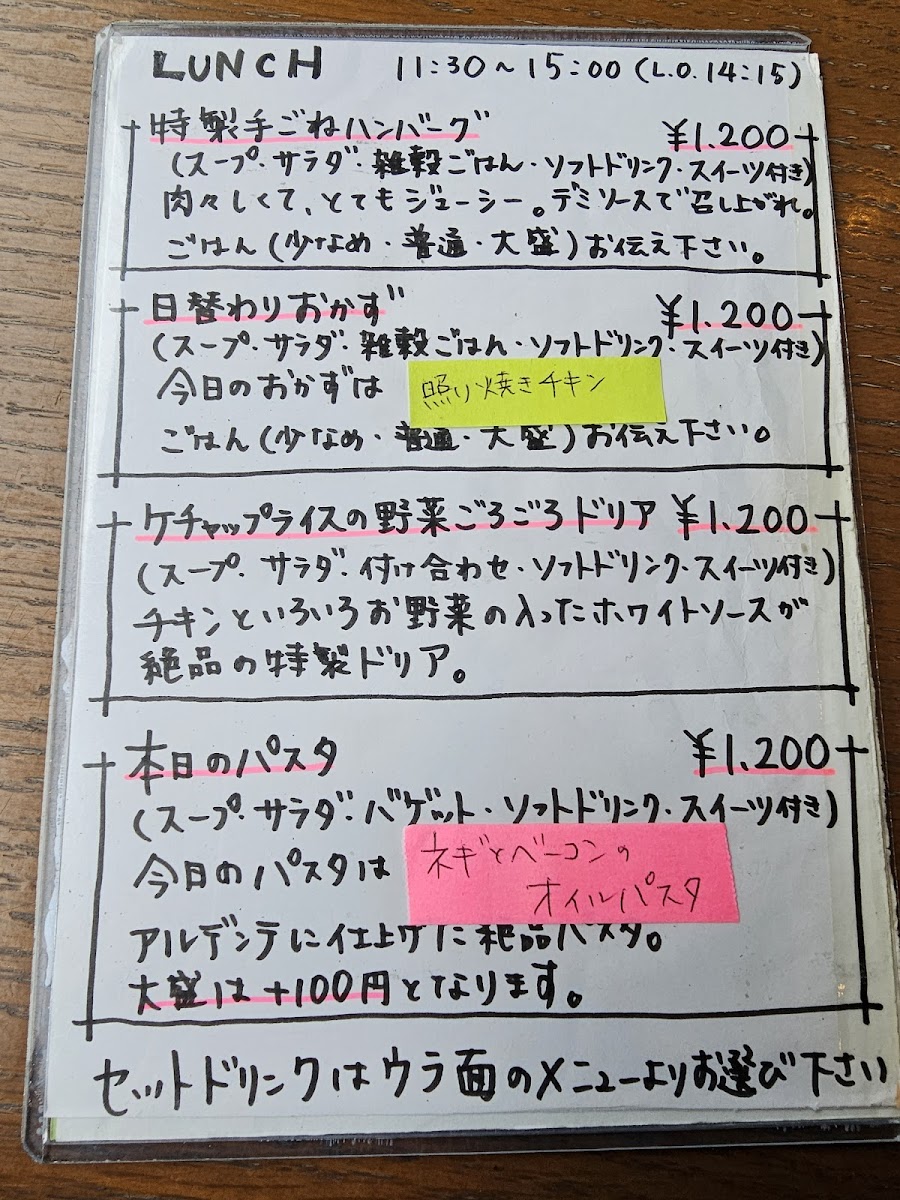 LUNCH 11:30～15:00 (L.O.14:15)
特製手ごねハンバーグ ¥1.200
(スープ・サラダ・雑穀ごはん・ソフトドリンク・スイーツ付き)
肉々しくて、とてもジューシー。デミソースで召し上がれ。
ごはん(少なめ・普通・大盛)お伝え下さい。
日替わりおかず ¥1.200
(スープ・サラダ・雑穀ごはん・ソフトドリンク・スイーツ付き)
今日のおかずは 照り焼きチキン
ごはん(少なめ・普通・大盛)お伝え下さい。
ケチャップライスの野菜ごろごろドリア ¥1.200
(スープ・サラダ・付け合わせ・ソフトドリンク・スイーツ付き)
チキンといろいろお野菜の入ったホワイトソースが
絶品の特製ドリア。
本日のパスタ ¥1.200
(スープ・サラダ・バゲット・ソフトドリンク・スイーツ付き)
今日のパスタは ネギとベーコンの
オイルパスタ
アルデンテに仕上げた絶品パスタ。
大盛は+100円となります。
セットドリンクはウラ面のメニューよりお選び下さい